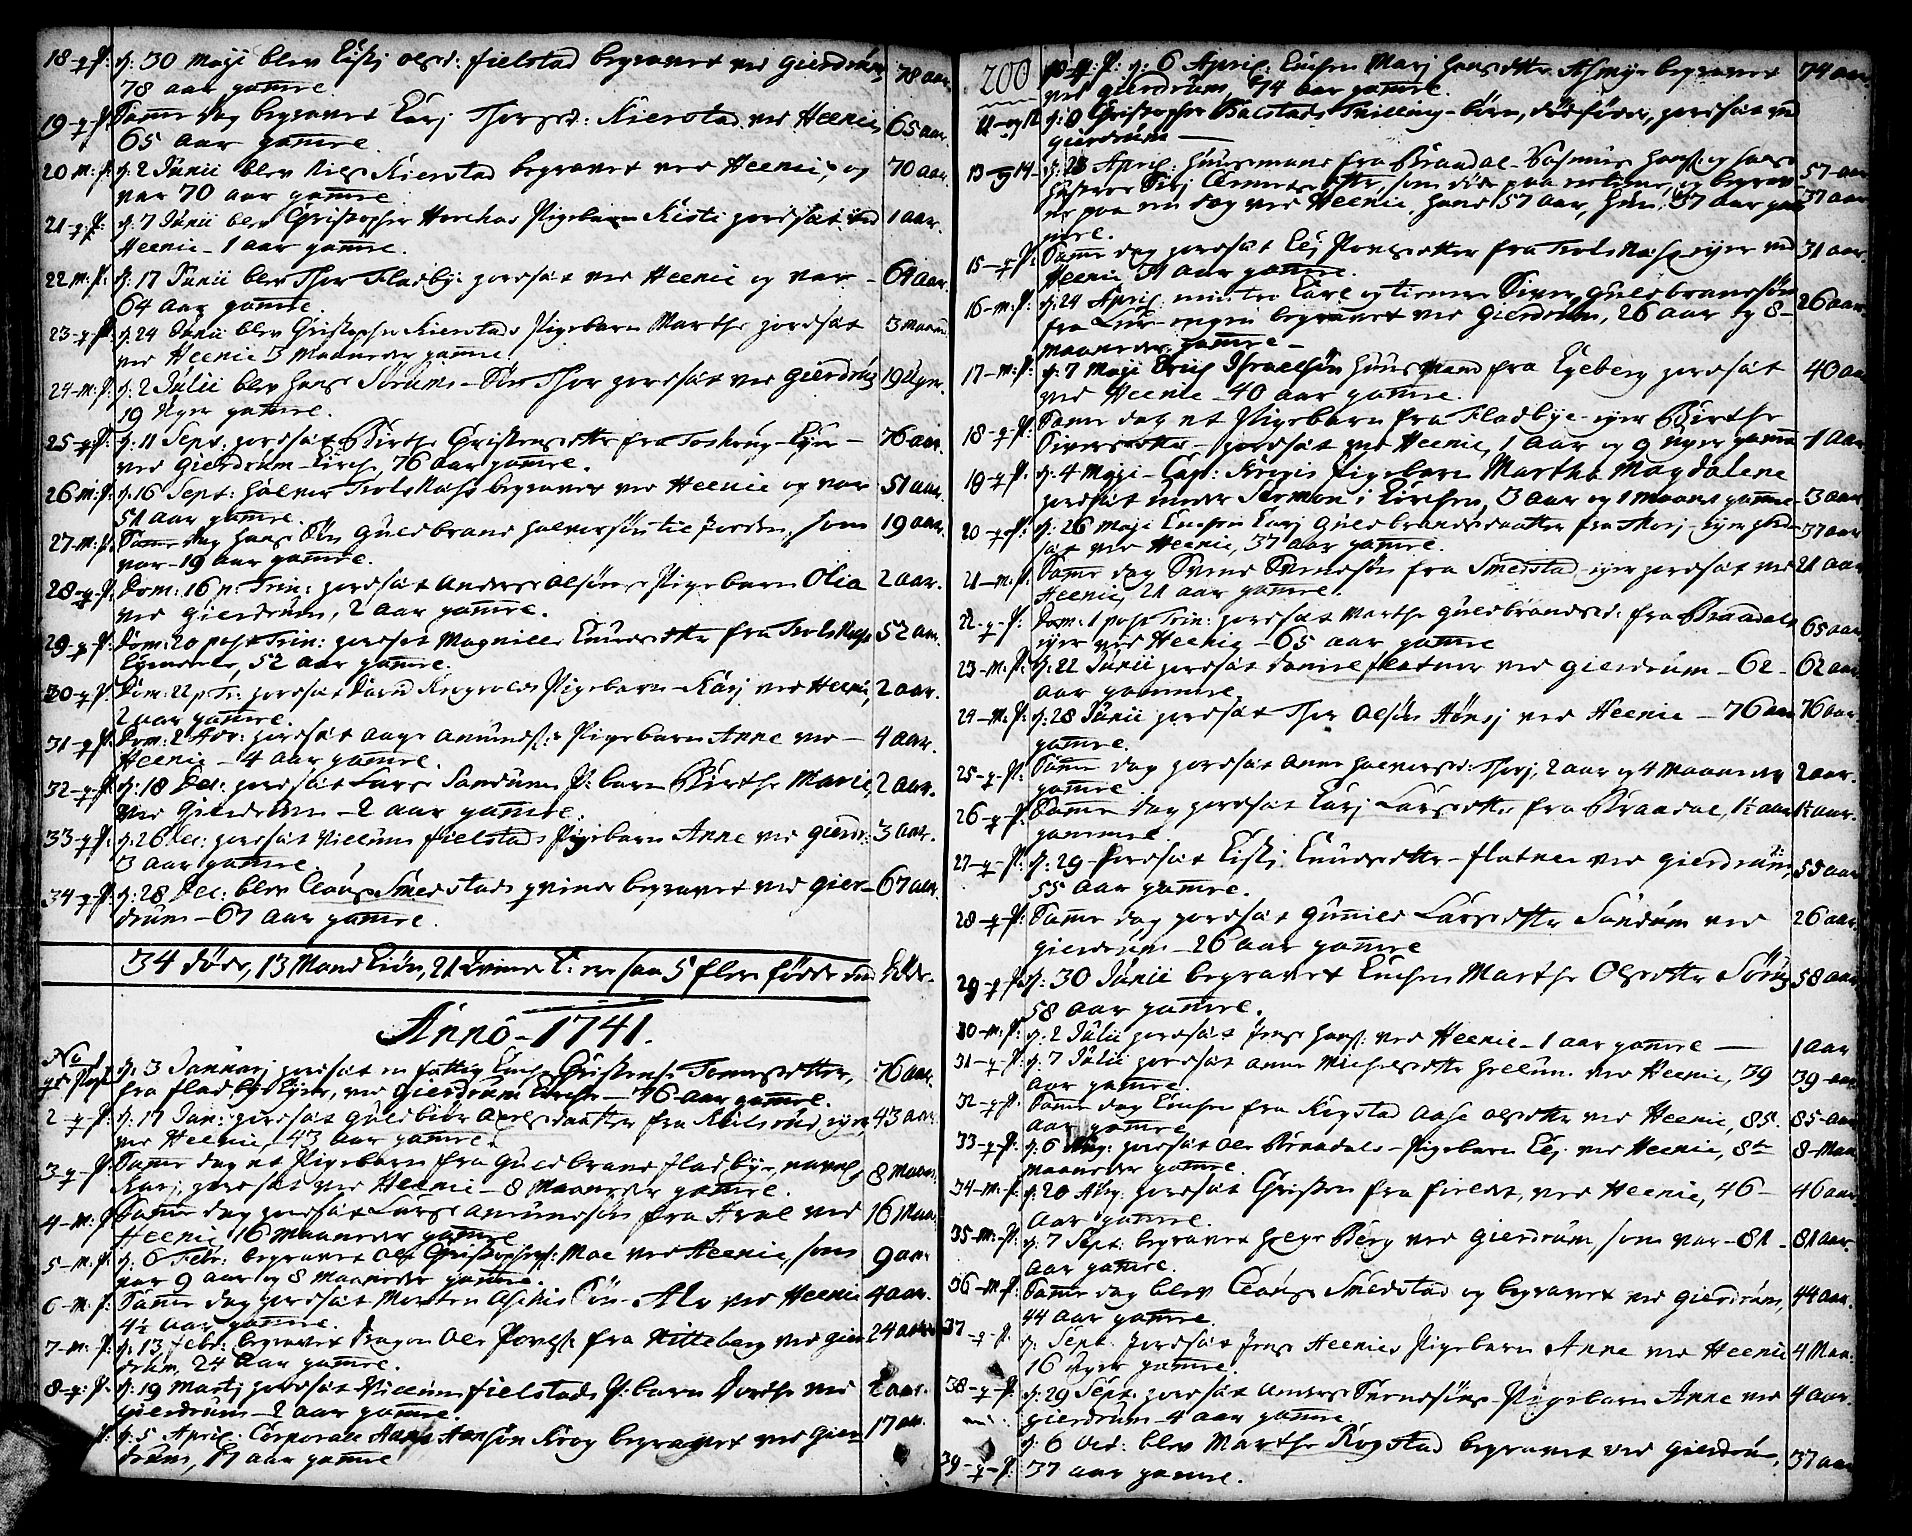 18-q-P: d: 30 Maji blev Eisti olsd: fielstad begravet ved gierdrum 78 aar.
78 aar gamle.
19-q-P Samme dag begravet Kari Thorsd: Kierstad ved Heenie 65 aar.
65 aar gamle.
20 m: P: d: 2 Junii blev Niels Kierstad begravet ved Heenie, og 70 aar.
var 70 aar gamle.
21-q-P: d: 7 Junii blev Christopher Pigebarn Kisti jordsat ved 1 aar.
Heenie - 1 aar gamle.
22 m: P: d: 17 Junii blev Thor Fladbye jordsat ved Heenie og var - 64 aar.
64 aar gamle.
23-q-P: d: 24 Junii blev Christopher Kierstads Pigebarn Marthe jordsat 3 maan
ved Heenie 3 Maaneder gamle.
24-m: P: d: 2 Julii blev Hans Sørums - Søn Thor jordsat ved gierdrum 19 Uger.
19 Uger gamle.
25-q-P: d: 11 Sept. jordsat Birthe Christensdtr fra - Eyer - 76 aar.
ved gierdrum - Kirche, 76 aar gamle.
26 m: P: d: 16 Sept: Halvor begravet ved Heenie og var 51 aar.
51 aar gamle.
27-m: P: Samme dag hans Søn Guldbrand Halvorsøn til Jorden, som 19 aar.
var - 19 aar gamle.
28-q-P. Dom: 16 p: Trin: jordsat Anders Olsøns Pigebarn Olia 2 aar.
ved gierdrum, 2 aar gamle.
29-q-P: Dom: 20 post Trin: jordsat Magnille Knudsdtr fra 52 aar.
52 aar gamle.
30-q-P Dom: 22 p Tr: jordsat Pigebarn - Kari ved Heenie, 2 aar.
2 aar gamle.
31-q-P: Dom: 2 Adv: jordsat Aage Amunds: Pigebarn Anne ved - 4 aar.
Heenie - 4 aar gamle.
32-q-P d: 18 Dec: jordsat Lars Sandums P: barn Birthe Marie, 2 aar.
ved Gierdrum - 2 aar gamle.
33-q-P: d: 26 Dec: jordsat Villums fielstads Pigebarn Anne ved gierdr: 3 aar.
3 aar gamle.
34-q-P: d: 28 Dec: blev Clous Smedstads qvinde begravet ved gier- 67 aar.
drum - 67 aar gamle.
34 døde, 13 Mand Kiøn, 21 Qvinde K: er saa 5 flere fødde end døde.
Anno - 1741.
No 1
qv: P d: 3 Januarj jordsat en fattig Enche Christense Tommesdatter, 76 aar.
fra fladby Eyer, ved gierdrum Kirche - 76 aar gamle.
2-q-P: d: 17 Jan: jordsat Guldbiør Axelsdaatter fra eyer, 43 aar.
ved Heenie, 43 aar gamle.
3-q-P: Samme dag et Pigebarn fra Guldbrand fladbye, navnl: 8 Maan.
Kari, jordsat ved Heenie - 8 Maaneder gamle.
4-m: P Samme dag jordsat Lars Amundsøn fra ved 16 Maa.
Heenie 16 maaneder gamle
5-m: P: d: 6 Febr: begravet Ole Christophs: Moe ved Heenie, som 9 aar
var 9 aar og 8 Maaneder gamle.
6-m: P: Samme dag jordsat Morten Søn - ved Heenie 4 aar.
4½ aar gamle.
7-m: P: d: 13 febr: begravet Dragon Ole Povels: fra Kitteberg ved gier 24 aar
drum, 24 aar gamle.
8-q: P: d: 19 Martj jordsat Villum fielstads P: barn Dorthe ved 2 aar.
gierdrum - 2 aar gamle.
P: d: 5 April: Corporal Hans Hansøn Krog begravet ved Gier 17 aar.
drum, 17 aar gamle
200
10-q: P: d: 6 April: Enchen Marj Hansdtr Askmyr begravet 74 aar
ved gierdrum, 74 aar gamle.
11-og 12 d: 9 Christopher Balstads Tvilling-børn, dødfødde, jordsat ved
gierdrum -
13-og 14- d: 23 April: Huusmand fra Braadal - Rasmus Hans: og hans 57 aar
hustrue Sirj som døde paa og begrav- 37 aar
ne paa en dag ved Heenie, hand 57 aar, hun 37 aar gam
mle.
15-q-P: Samme dag jordsat Eli Povelsdatter fra eyer ved 31 aar.
Heenie 31 aar gamle.
16-m: P: d: 24 April: Siver Guldbrandsøn 26 aar.
fra begravet ved gierdrum, 26 aar og 8-
maaneder gamle -
17-m: P: d: 7 Maji Erich Israelsøn Huusmand fra Egeberg jordsat 40 aar
ved Heenie - 40 aar gamle.
18-q-P: Samme dag et Pigebarn fra Fladbye - eyer Birthe
Siversdatter - jordsat ved Heenie, 1 aar og 9 uger gamle 1 aar
19-q-P: d: 4 Maji - Capt: Pigebarn Martha Magdalene
jordsat under Sermon i Kirchen, 3 aar og 1 maaned gamle - 3 aar
20-q-P: d: 26 Maji Enchen Kari Guldbrandsdaatter fra - eyer jord- 37 aar
sat ved Heenie, 37 aar gamle.
21-m: P: Samme dag Svend Svendsøn fra Smedstad - eyer jordsat ved 21 aar
Heenie, 21 aar gamle.
22-q-P: Dom: 1 post Trin: jordsat Marthe Guldbrandsd: fra Braadals
eyer ved Heenie - 65 aar gamle 65 aar
23-m: P: d: 22 Junii jordsat Daniel flatner ved gierdrum - 62 - 62 aar
aar gammle
24-m: P: d: 28 Junii jordsat Thor Olsøn Hønsj ved Heenie - 76 aar 76 aar
gamle.
25-q-P: Samme dag jordsat Anne Halvorsd: 2 aar og 4 Maaneder 2 aar.
gamle
26-q-P: Samme dag jordsat Kari Larsdtr fra Braadal, 1½ aar 1½ aar.
gammle
27-q-P: d: 29 - Jordsat Eisti Knudsdtr - flatner ved gierdrum, 55 aar
55 aar gamle.
28-q-P: Samme dag jordsat Gunild Larsdtr Sandum ved 26 aar.
gierdrum - 26 aar gamle
29-q-P: d: 30 Junii begravet Enchen Marthe Olsdtr Sørum 58 aar
58 aar gamle.
30-m: P: d: 2 Julii jordsat Jens Hans: ved Heenie - 1 aar gamle - 1 aar
31-q-P: d: 7 Julii jordsat Anne Michelsdtr ved Heenie, 39 39 aar
aar gamle.
32-q-P: Samme dag Enchen fra Kogstad Aase Olsdtr ved Heenie, 85. 85-aar
aar gamle
33-q-P: d: 6 Aug: jordsat Ole Braadals - Pigebarn Eli ved Heenie, 8te 8-Maa
maaneder gamle.
34-m: P: d: 20 Aug: jordsat Christen fra ved Heenie, 46 - 46 aar
aar gamle.
35-m: P: d: 7 Sept: begravet Helge Berg ved gierdrum, som var - 81 - 81 aar.
aar gamle.
36-m: P: Samme dag blev Clous Smedstad og begravet ved gierdrum, 44 aar.
44 aar gamle.
37-q-P: d: Sept: Jordsat Jens Heenies Pigebarn Anne ved Heenie 4 Maa:
16 uger gamle.
38-q-P: d: 29 Sept: jordsat Anders Svendsøns - Pigebarn Anne ved 4 aar.
gierdrum - 4 aar gamle
39-q-P: d: 6 Oct: blev Marthe Kogstad begravet ved gierdrum, 37 aar
37 aar gamle.